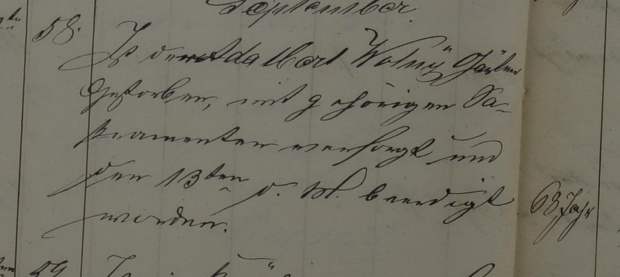 September.
58.
Ist der Adalbert Wolny Gärtner
gestorben, mit gehörigen Sa-
kramenten versorgt und
den 13ten d. M. beerdigt
worden.
68 Jahr
59.